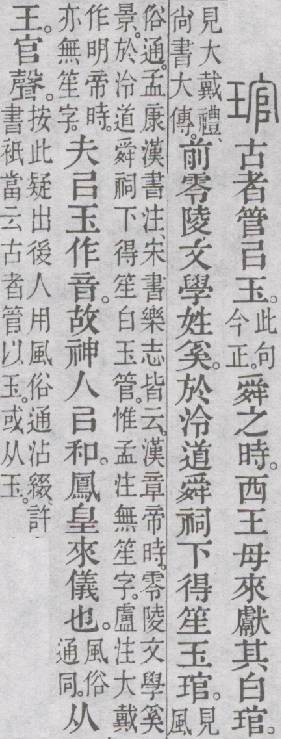 琯古者管㠯玉。此句今正。舜之時。西王母來獻其白琯。
見大戴禮、尚書大傳。前零陵文學姓奚。於泠道舜祠下得笙玉琯。見風
俗通。孟康漢書注、宋書樂志皆云。漢章帝時。零陵文學奚景。於泠道舜祠下得笙白玉管。惟孟注無笙字。盧注大戴
作明帝時。亦無笙字。夫㠯玉作音。故神人㠯和。鳳皇來儀也。風俗通同。从
王。官聲。按此疑出後人用風俗通沾綴。許書祇當云古者管以玉。或从玉。